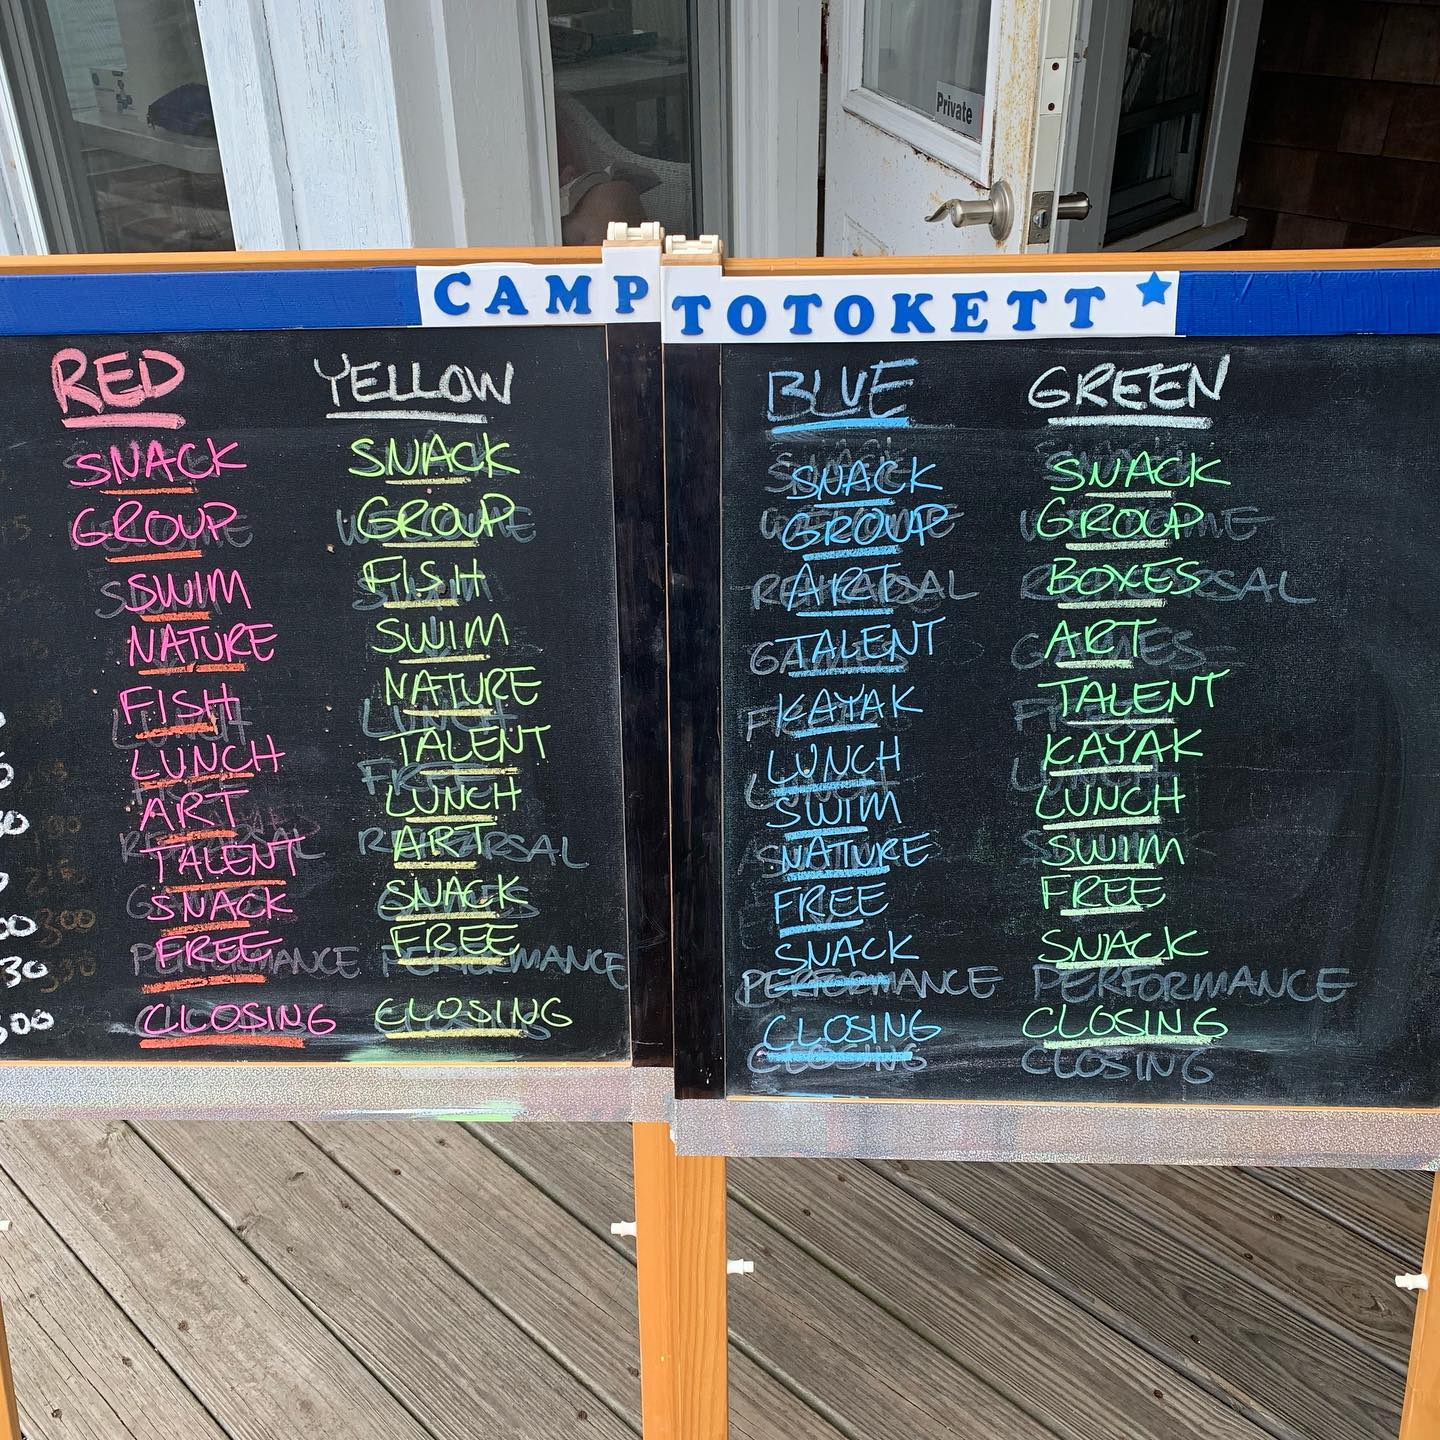 Private
CAMP TOTOKETT
RED
SNACK
GROUP
SWIM
NATURE
FISH
LUNCH
ART
TALENT
SNACK
FREE
CLOSING
YELLOW
SNACK
GROUP
FISH
SWIM
NATURE
TALENT
LUNCH
ART
SNACK
FREE
CLOSING
BLUE
SNACK
GROUP
ART
TALENT
KAYAK
LUNCH
SWIM
NATURE
FREE
SNACK
PERFORMANCE
CLOSING
CLOSING
GREEN
SNACK
GROUP
BOXES
ART
TALENT
KAYAK
LUNCH
SWIM
FREE
SNACK
PERFORMANCE
CLOSING
CLOSING